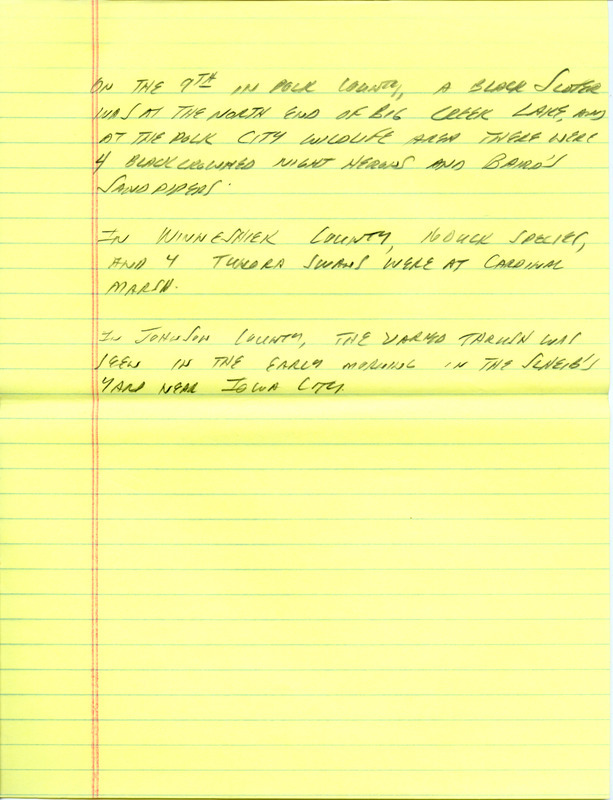 ON THE 9TH IN POLK COUNTY, A BLACK SCOTER
WAS AT THE NORTH END OF BIG CREEK LAKE, AND
AT THE POLK CITY WILDLIFE AREA THERE WERE
4 BLACK CROWNED NIGHT HERONS AND BAIRD'S
SANDPIPERS.
IN WINNESHIEK COUNTY, 16 DUCK SPECIES,
AND 4 TUNDRA SWANS WERE AT CARDINAL
MARSH.
IN JOHNSON COUNTY, THE VARIED THRUSH WAS
SEEN IN THE EARLY MORNING IN THE SCHEIB'S
YARD NEAR IOWA CITY.